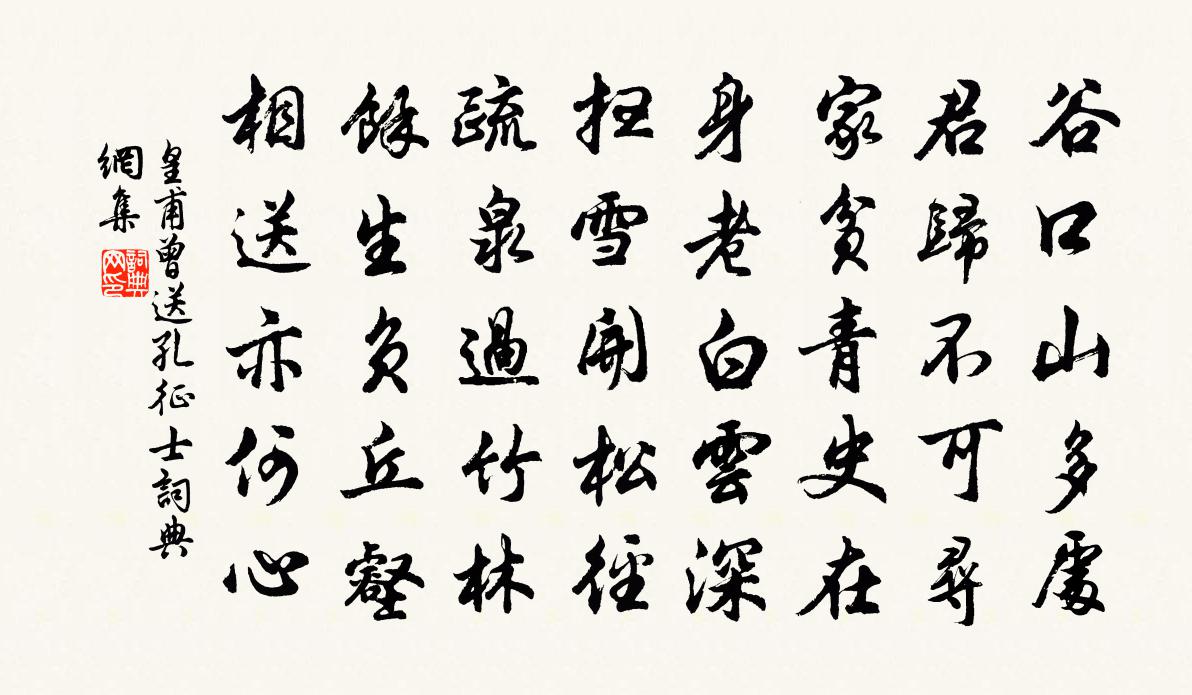 谷口山多處
君歸不可尋
家貧青史在
身老白雲深
掃雪開松徑
疏泉過竹林
餘生負丘壑
相送亦何心
皇甫曾送孔征士詞典
網集
詞典网印